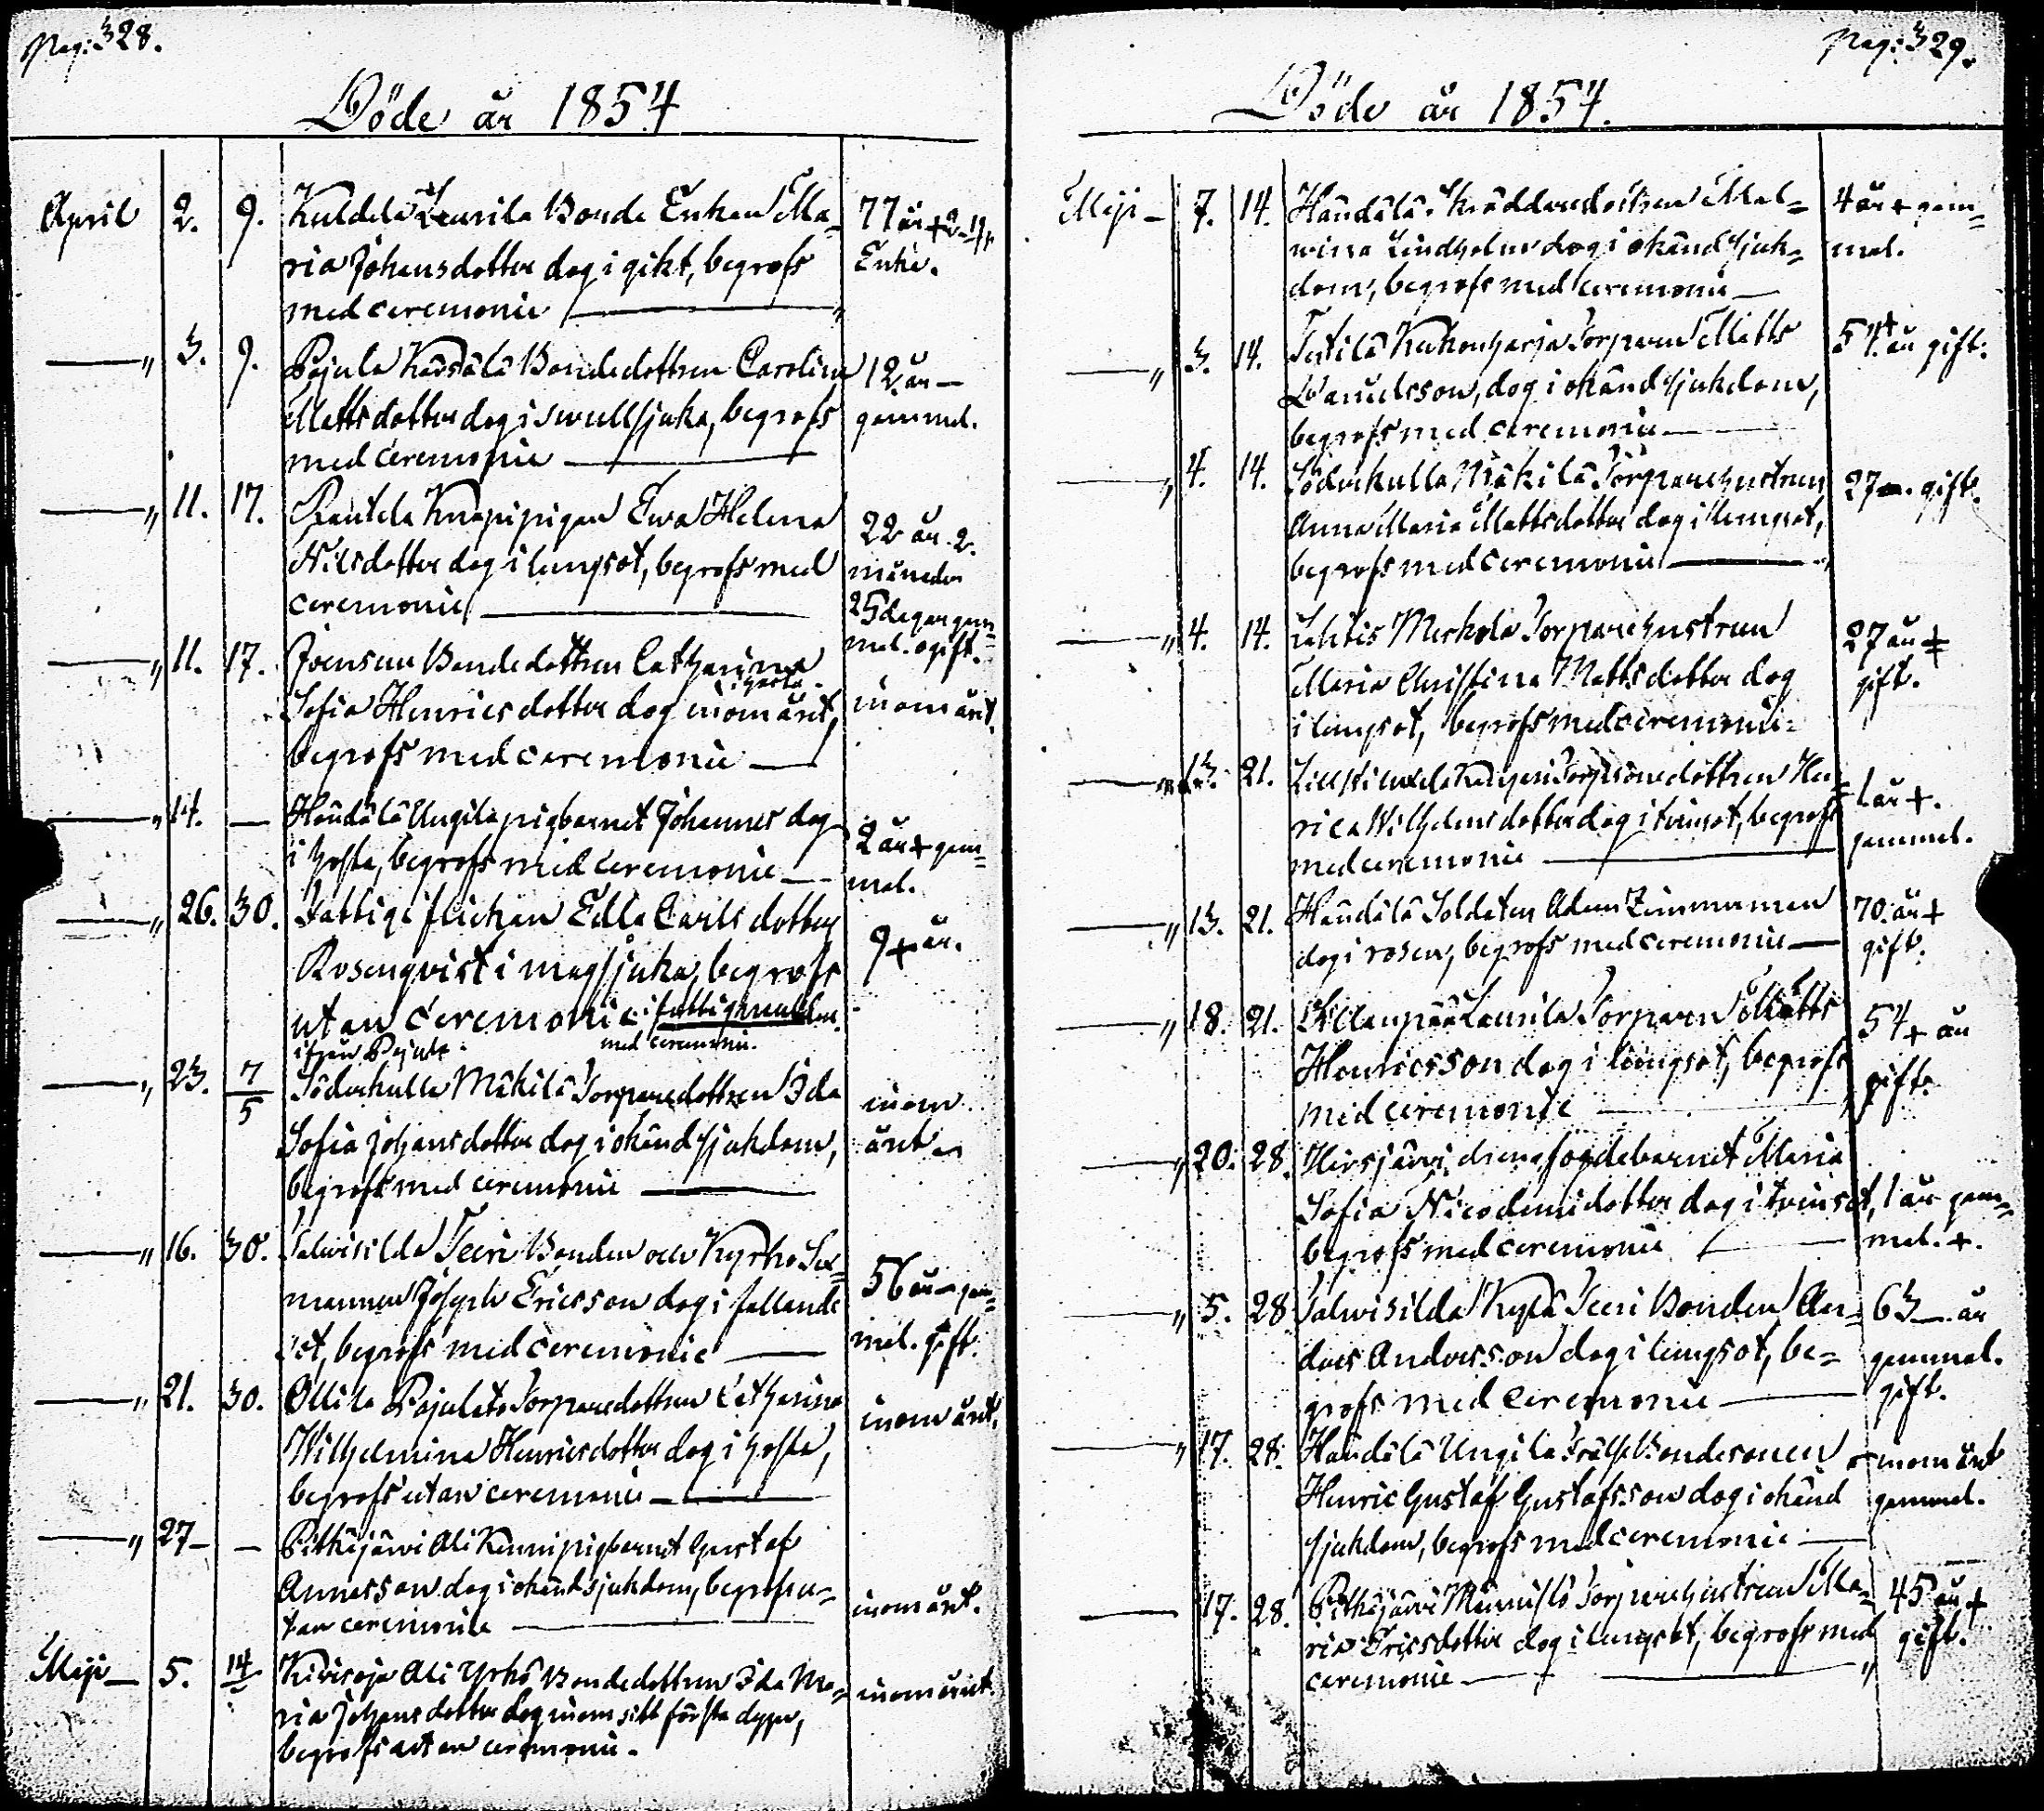 Pag: 328.
Döde år 1854
April 2. 9. Kuldela Laurila Bonde Enkan Ma= 77 år +
ria Johansdotter dog i gikt, begrofs Enka.
med ceremonie
" 3. 9. Pajula Bondedottren Carolina 12 år
Mattsdotter dog i swullsjuka, begrofs gammal.
med ceremonie
" 11. 17. Rautela Knapipigan Ewa Helena 22 år 2.
Nilsdotter dog i lungsot, begrofs med månader
ceremonie 25 dagar gam=
mal. ogift.
" 11. 17. Joensuu Bondedottren Catharina
i hosta
Sofia Henricsdotter dog inom året, inom året.
begrofs med ceremonie
" 14. — Handälä Ungila pigbarnet Johannes dog 2 år + gam=
i hosta, begrofs med ceremonie mal.
" 26. 30. Fattigflickan Edla Carlsdotter 9 + år.
Rosenqvist i magsjuka, begrofs
utan ceremonie. i
ifrån Pajula med ceremonie.
" 23. 7/5 Söderkulla Mäkilä Torparedottren Ida inom
Sofia Johansdotter dog i okänd sjukdom, året
begrofs med ceremonie
" 16. 30. Salwisilda Teeri Bonden och Kyrko Sex= 56 år gam=
mannen Joseph Ericsson dog i fallande mal. gift.
sot, begrofs med ceremonie
" 21. 30. Ollila Pajulato Torparedottren Catharina inom året.
Wilhelmina Henricsdotter dog i hosta,
begrofs utan ceremonie
" 27 — Pitkäjärwi Ali Kenni pigbarnet Gustaf
Annasson dog i okänd sjukdom, begrofs u= inom året.
tan ceremonie
Maji 5. 14 Kivisoja Ali Yrkö Bondedottren Ida Ma= inom året
ria Johansdotter dog inom sitt första dygn,
begrofs utan ceremonie.
Pag: 329.
Döde år 1854.
Maji 7. 14. Handälä Skräddaredottren Mal= 4 år + gam=
wina Lindholm dog i okänd sjuk= mal.
dom, begrofs med ceremonie
" 3. 14. Torparen Matts 54 + år gift.
Danielsson, dog i okänd sjukdom,
begrofs med ceremonie
" 4. 14. Söderkulla Mäkilä Torparehustrun 27 gift.
Anna Maria Mattsdotter dog i lungsot,
begrofs med ceremonie
" 4. 14. Lahtis Merkola Torparehustrun 27 år +
Maria Christina Mattsdotter dog gift.
i lungsot, begrofs med ceremonie
" 13. 21. dottren Hen= 1 år +.
rica Wilhelmsdotter dog i twinsot, begrofs gammal.
med ceremonie
" 13. 21. Handälä Soldaten Adam Zimmerman 70. år +
dog i rosen, begrofs med ceremonie gift.
" 18. 21. Laurila Torparen Matts 54 + år
Henricsson dog i lungsot, begrofs gift.
med ceremonie
" 20. 28. Hirsjärwi barnet Maria
Sofia Nicodemidotter dog i twinsot, 1 år gam=
begrofs med ceremonie mal. +.
" 5. 28 Salwisilda Kylä Teeri Bonden An= 63 år
ders Andersson dog i lungsot, be= gammal.
grofs med ceremonie gift.
" 17. 28. Handälä Ungila Frälse Bondesonen inom året
Henric Gustaf Gustafsson dog i okänd gammal.
sjukdom, begrofs med ceremonie
17. 28. Pitkäjärwi Männistö Torparehustrun Ma= 45 år +
ria Ericsdotter dog i lungsot, begrofs med gift.
ceremonie